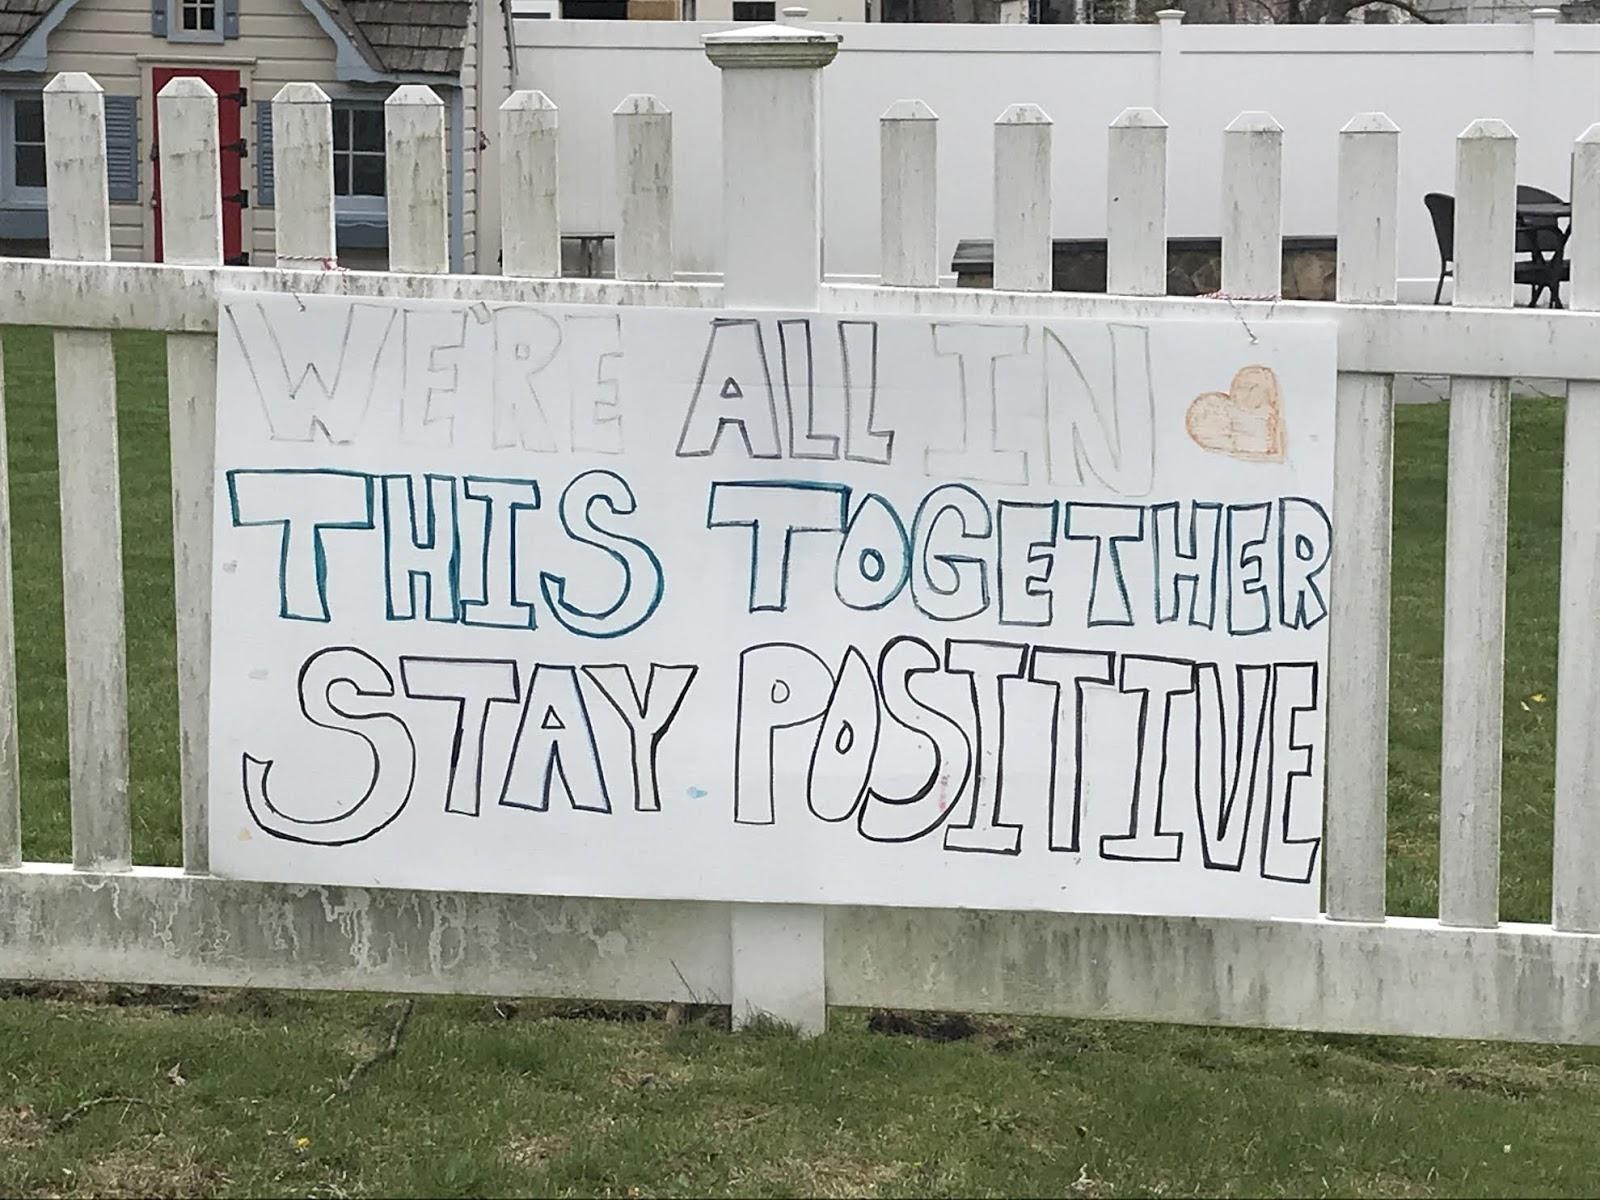 WE'RE ALL IN
THIS TOGETHER
STAY POSITIVE